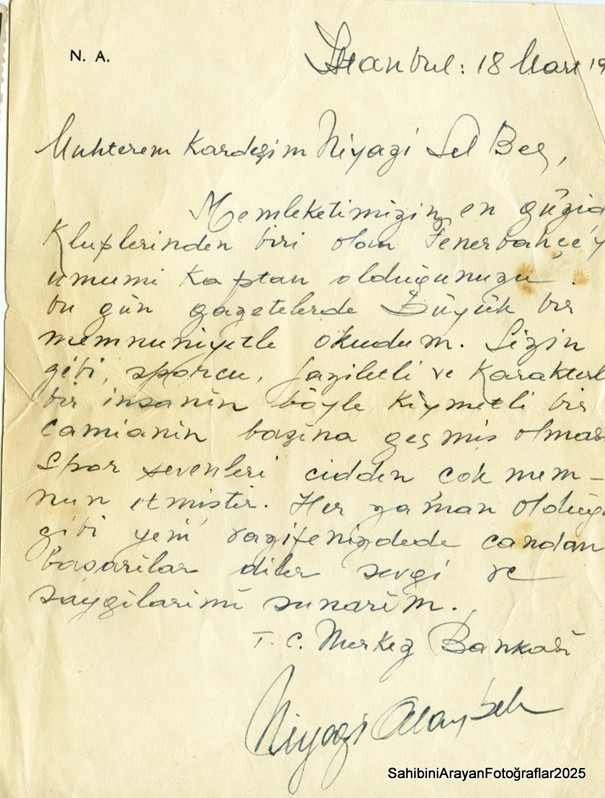 N. A.
İstanbul: 18 Mart 19
Muhterem Kardeşim Niyazi Sel Bey,
Memleketimizin en güzid
Kluplerinden biri olan Fenerbahçe'y
umumi kaptan olduğunuzu
bu gün gazetelerde Büyük bir
memnuniyetle okudum. Sizin
gibi, sporcu, faziletli ve karakterl
bir insanın böyle kıymetli bir
camianın başına geçmiş olmas
Spor sevenleri cidden çok mem-
nun etmiştir. Her zaman olduğu
gibi yeni vazifenizdede candan
başarılar diler sevgi ve
saygılarımı sunarım.
T. C. Merkez Bankası
Niyazi
SahibiniArayanFotoğraflar2025